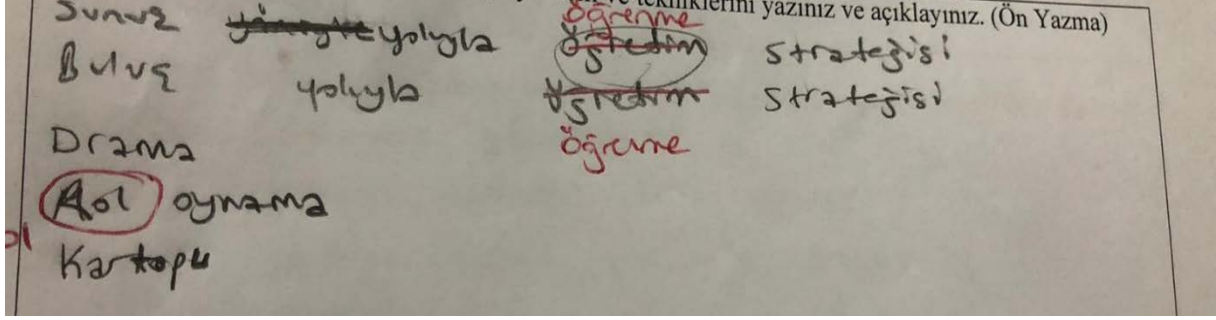 tekniklerini yazınız ve açıklayınız. (Ön Yazma)
öğrenme
Sunuş yoluyla öğretim stratejisi
Buluş yoluyla öğretim stratejisi
öğrenme
Drama
Aol oynama
Kartopu